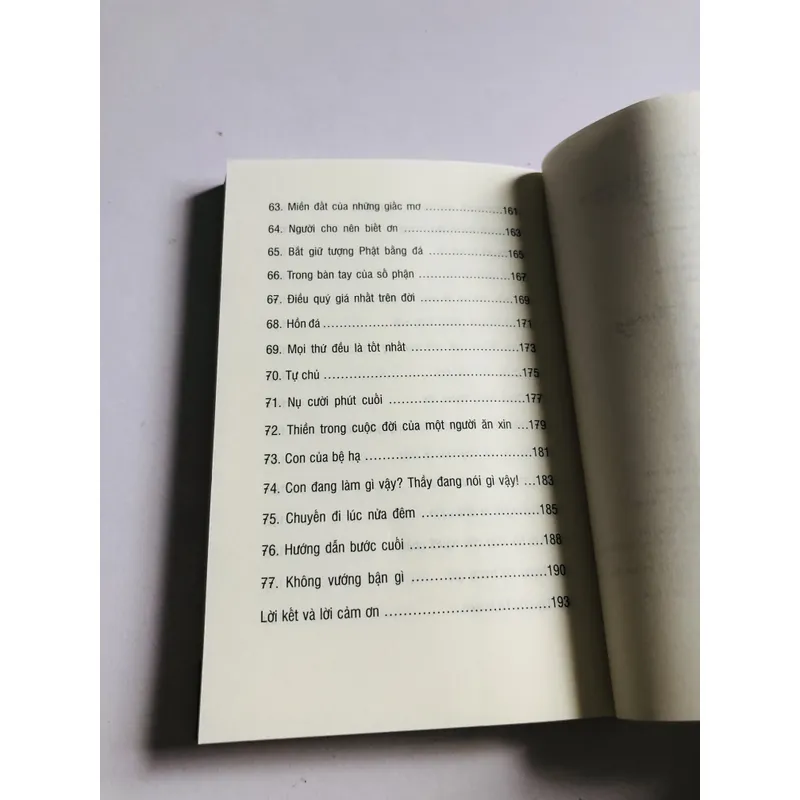 63. Miền đất của những giấc mơ ........................161
64. Người cho nên biết ơn ........................163
65. Bắt giữ tượng Phật bằng đá ........................165
66. Trong bàn tay của số phận ........................167
67. Điều quý giá nhất trên đời ........................169
68. Hồn đá ........................171
69. Mọi thứ đều là tốt nhất ........................173
70. Tự chủ ........................175
71. Nụ cười phút cuối ........................177
72. Thiền trong cuộc đời của một người ăn xin ...179
73. Con của bệ hạ ........................181
74. Con đang làm gì vậy? Thầy đang nói gì vậy! ...183
75. Chuyến đi lúc nửa đêm ........................185
76. Hướng dẫn bước cuối ........................188
77. Không vướng bận gì ........................190
Lời kết và lời cảm ơn ........................193